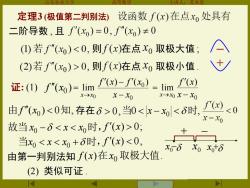 定理3 (极值第二判别法) 设函数 f(x) 在点 x₀ 处具有
二阶导数, 且 f′(x₀) = 0, f″(x₀) ≠ 0
(1) 若 f″(x₀) < 0, 则 f(x) 在点 x₀ 取极大值;
(2) 若 f″(x₀) > 0, 则 f(x) 在点 x₀ 取极小值.
证: (1) f″(x₀) = lim_{x→x₀} (f′(x) − f′(x₀))/(x − x₀) = lim_{x→x₀} f′(x)/(x − x₀)
由 f″(x₀) < 0 知, 存在 δ > 0, 当 0 < |x − x₀| < δ 时, f′(x)/(x − x₀) < 0
故当 x₀ − δ < x < x₀ 时, f′(x) > 0;
当 x₀ < x < x₀ + δ 时, f′(x) < 0,
+ −
x₀−δ x₀ x₀+δ
由第一判别法知 f(x) 在 x₀ 取极大值.
(2) 类似可证.